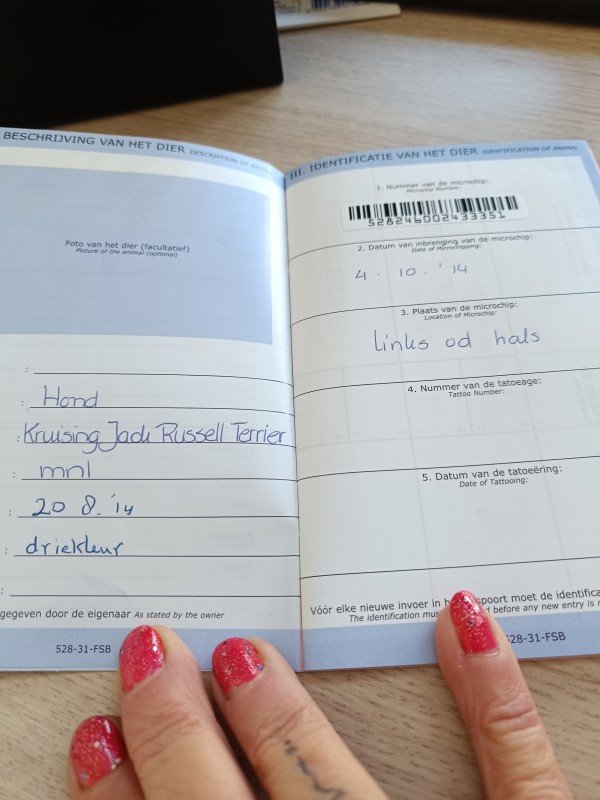 BESCHRIJVING VAN HET DIER DESCRIPTION OF ANIMAL
Foto van het dier (facultatief)
Picture of the animal (optional)
:
: Hond
: Kruising Jack Russell Terrier
: mnl
: 20 8. '14
: driekleur
:
gegeven door de eigenaar As stated by the owner
528-31-FSB
III. IDENTIFICATIE VAN HET DIER IDENTIFICATION OF ANIMAL
1. Nummer van de microchip:
Microchip Number:
528246002433351
2. Datum van inbrenging van de microchip:
Date of Microchipping:
4. 10. '14
3. Plaats van de microchip:
Location of Microchip:
links od hals
4. Nummer van de tatoeage:
Tattoo Number:
5. Datum van de tatoeëring:
Date of Tattooing:
Vóór elke nieuwe invoer in spoort moet de identifica
The identification mus before any new entry is
528-31-FSB